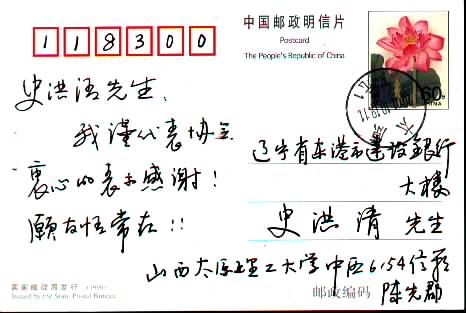 118300
中国邮政明信片
Postcard
The People's Republic of China
60分
CHINA
史洪清先生、
我谨代表协会
衷心的表示感谢!
愿友情常在!!
辽宁省东港市建设银行
大楼
史洪清 先生
山西太原理工大学中区6154信箱
陈先郡
国家邮政局发行 (1999)
Issued by the State Postal Bureau
邮政编码